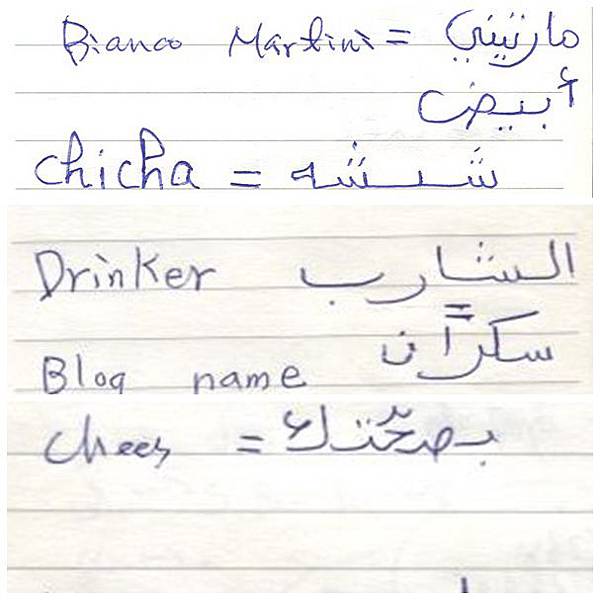 Bianco Martini = مارتيني
أبيض
chicha = شسشه
Drinker الشارب
=
سكران
Blog name
chees = بصحّتك